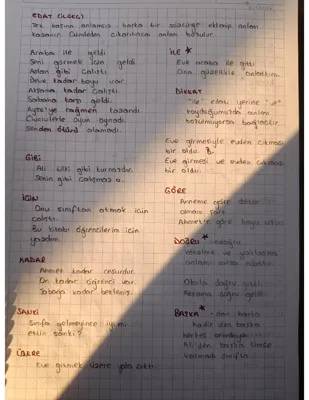 EDAT (İLGEÇ)
Tek başına anlamsız başka bir sözcüğe eklenip anlam
kazanır. Cümleden çıkarılınca anlam bozulur.
Araba ile geldi
Seni görmek için geldi
Aslan gibi çalıştı
Deve kadar boyu var.
Akşama kadar çalıştı
Sabaha karşı geldi.
Ayşe'ye rağmen kazandı
Çocuklarla oyun oynadı
Senden ötürü alamadı.
GİBİ
Ali tilki gibi kurnazdır.
Senin gibi çalışmaz o.
İÇİN
Onu sınıftan atmak için
çalıştı.
Bu kitabı öğrencilerim için
yazdım.
KADAR
Ahmet kadar cesurdur.
On kadar öğrenci var.
Sabaha kadar bekledik.
SANKİ
Sınıfa gelmeyince iyi mi
ettin sanki?
ÜZERE
Eve gitmek üzere yola çıktı.
İLE *
Eve araba ile gitti
Ona güzellikle anlattım.
DİKKAT
"ile" edatı yerine "ve"
koyduğumuzda anlam
bozulmuyorsa bağlaçtır.
Eve girmesiyle evden çıkması
bir oldu.
Eve girmesi ve evden çıkması
bir oldu.
GÖRE
Anneme göre doktor
olmam şart.
Ahmet'e göre hava
DOĞRU *
yönelme ve yaklaşma
anlamı
Okula doğru gitti.
Akşama doğru gelir.
BAŞKA *
hariç
herkes
Ali'den başka kimse
kalmadı sınıfta